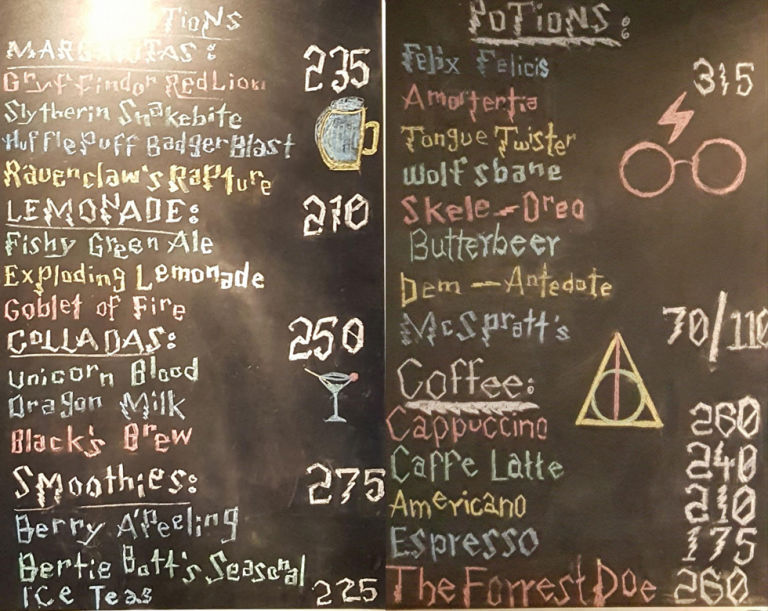 TIONS
MARGARITAS: 235
Gryffindor Red Lion
Slytherin Snakebite
HufflePuff Badger Blast
Ravenclaw's Rapture
LEMONADE: 210
Fishy Green Ale
Exploding Lemonade
Goblet of Fire
COLLADAS: 250
Unicorn Blood
Dragon Milk
Black's Brew
Smoothies: 275
Berry A'Peeling
Bertie Bott's Seasonal
ICe Teas 225
POTIONS:
Felix Felicis 315
Amortertia
Tongue Twister
Wolfsbane
Skele-Dreo
Butterbeer
Dem - Antedote
McSpratt's 70/110
Coffee:
Cappuccino 260
Caffe Latte 240
Americano 210
Espresso 175
The Forrest Doe 260